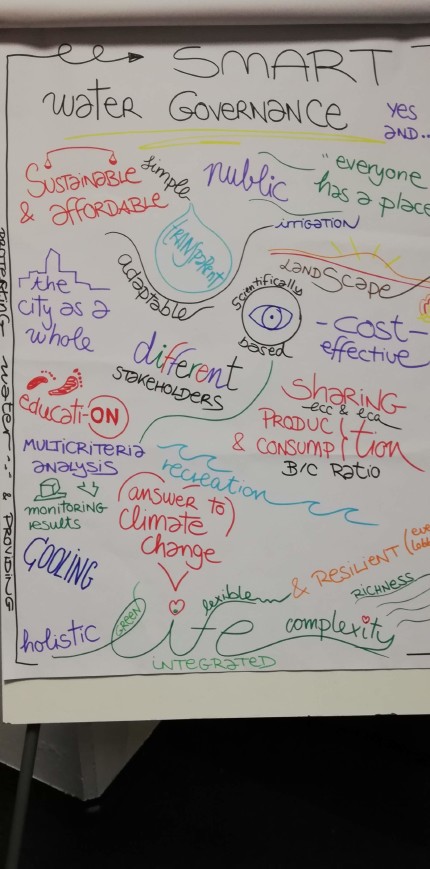 SMART
water GOVERNANCE
yes
and..
SUSTAINABLE
& affORDABLE
simple
public
"everyone
has a place
IRRIGATION
transparent
adaptable
LANDSCAPE
the
city as a
whole
Scientifically
based
-COST-
effective
different
STAKEHOLDERS
educati-ON
SHARING
ecc & eca
PRODUC
& CONSUMP
tion
B/C Ratio
MULTICRITERIA
analysis
recreation
monitoring
results
(answer to)
climate
change
COOLING
& RESILIENT
RICHNESS
flexible
GREEN
life
complexity
holistic
INTEGRATED
water ... & PROVIDING